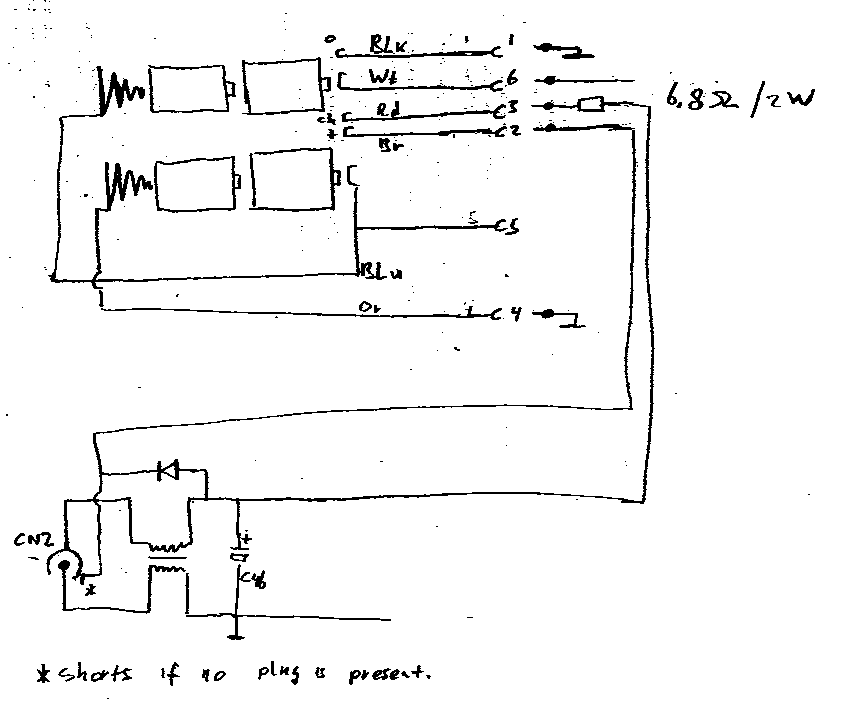 BLK 1
Wt 6
Rd 3 6.8Ω/2W
* 2
Br
5 5
BLu
Or 4
CN2
-
+
*
C46
* shorts if no plug is present.